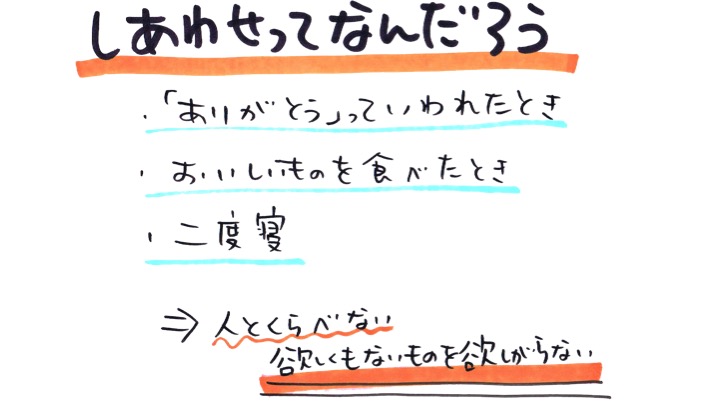 しあわせってなんだろう
・「ありがとう」っていわれたとき
・おいしいものを食べたとき
・二度寝
⇒人とくらべない
欲しくもないものを欲しがらない